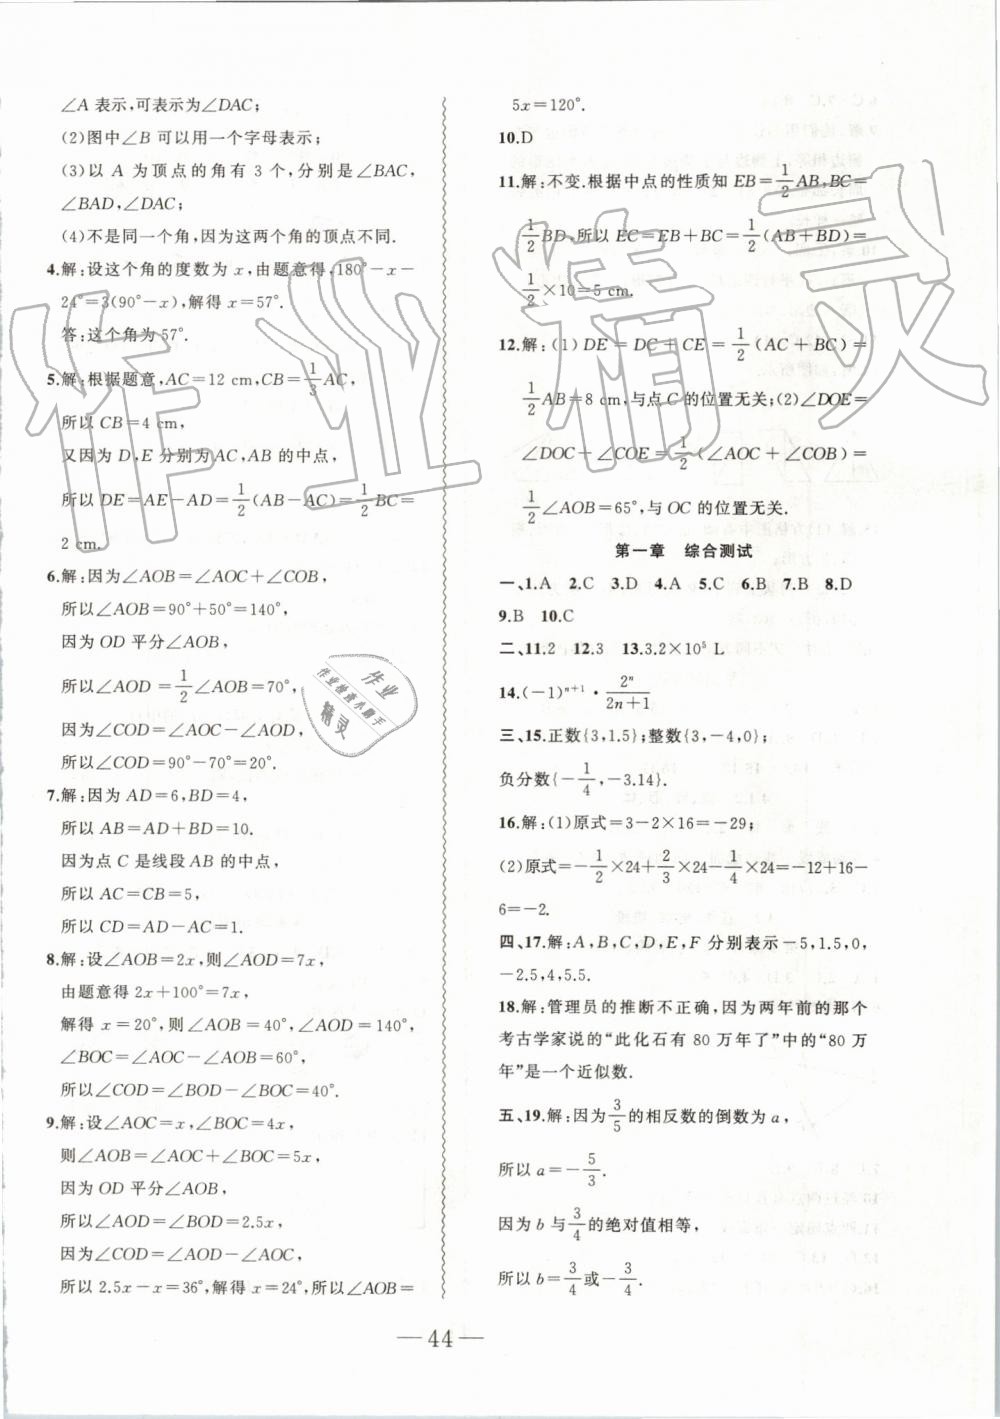 ∠A表示,可表示为∠DAC;
(2)图中∠B可以用一个字母表示;
(3)以A为顶点的角有3个,分别是∠BAC,
∠BAD,∠DAC;
(4)不是同一个角,因为这两个角的顶点不同.
4.解:设这个角的度数为x,由题意得,180°-x-
24°=3(90°-x),解得x=57°.
答:这个角为57°.
5.解:根据题意,AC=12 cm,CB=1/3AC,
所以CB=4 cm,
又因为D,E分别为AC,AB的中点,
所以DE=AE-AD=1/2(AB-AC)=1/2BC=
2 cm.
6.解:因为∠AOB=∠AOC+∠COB,
所以∠AOB=90°+50°=140°,
因为OD平分∠AOB,
所以∠AOD=1/2∠AOB=70°,
因为∠COD=∠AOC-∠AOD,
所以∠COD=90°-70°=20°.
7.解:因为AD=6,BD=4,
所以AB=AD+BD=10.
因为点C是线段AB的中点,
所以AC=CB=5,
所以CD=AD-AC=1.
8.解:设∠AOB=2x,则∠AOD=7x,
由题意得2x+100°=7x,
解得x=20°,则∠AOB=40°,∠AOD=140°,
∠BOC=∠AOC-∠AOB=60°,
所以∠COD=∠BOD-∠BOC=40°.
9.解:设∠AOC=x,∠BOC=4x,
则∠AOB=∠AOC+∠BOC=5x,
因为OD平分∠AOB,
所以∠AOD=∠BOD=2.5x,
因为∠COD=∠AOD-∠AOC,
所以2.5x-x=36°,解得x=24°,所以∠AOB=
5x=120°.
10.D
11.解:不变.根据中点的性质知EB=1/2AB,BC=
1/2BD,所以EC=EB+BC=1/2(AB+BD)=
1/2×10=5 cm.
12.解:(1)DE=DC+CE=1/2(AC+BC)=
1/2AB=8 cm,与点C的位置无关;(2)∠DOE=
∠DOC+∠COE=1/2(∠AOC+∠COB)=
1/2∠AOB=65°,与OC的位置无关.
第一章 综合测试
一、1.A 2.C 3.D 4.A 5.C 6.B 7.B 8.D
9.B 10.C
二、11.2 12.3 13.3.2×10⁵ L
14.(-1)ⁿ⁺¹·2ⁿ/(2n+1)
三、15.正数{3,1.5};整数{3,-4,0};
负分数{-1/4,-3.14}.
16.解:(1)原式=3-2×16=-29;
(2)原式=-1/2×24+2/3×24-1/4×24=-12+16-
6=-2.
四、17.解:A,B,C,D,E,F分别表示-5,1.5,0,
-2.5,4,5.5.
18.解:管理员的推断不正确,因为两年前的那个
考古学家说的“此化石有80万年了”中的“80万
年”是一个近似数.
五、19.解:因为3/5的相反数的倒数为a,
所以a=-5/3.
因为b与3/4的绝对值相等,
所以b=3/4或-3/4.
—44—
作业精灵
作业
作业检查小助手
精灵